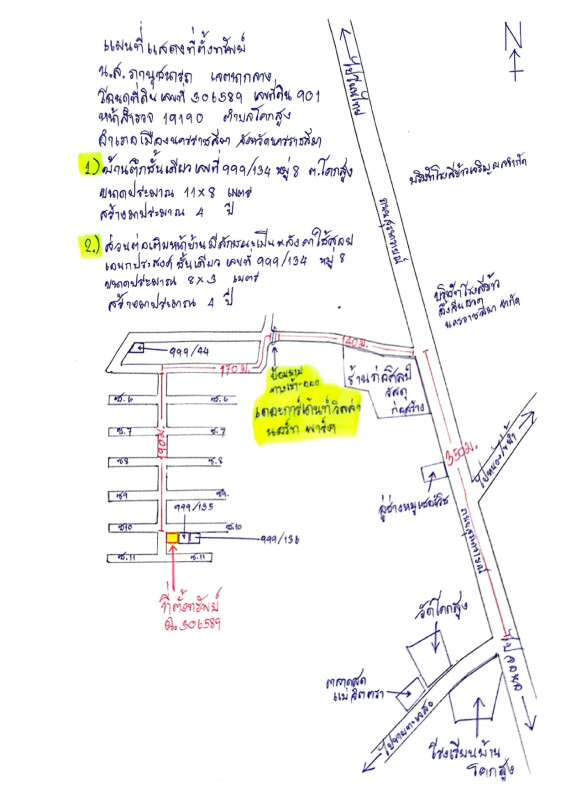 แผนที่แสดงที่ตั้งทรัพย์
น.ส.
โฉนดที่ดินเลขที่ 306589 เลขที่ดิน 901
หน้าสำรวจ 19190 ตำบลโคกสูง
อำเภอเมืองนครราชสีมา จังหวัดนครราชสีมา
1.) บ้านตึกชั้นเดียว เลขที่ 999/134 หมู่ 8 ต.โคกสูง
ขนาดประมาณ 11x8 เมตร
สร้างมาประมาณ 4 ปี
2.) ส่วนต่อเติมหน้าบ้าน มีลักษณะเป็นหลังคาใช้สอย
เอนกประสงค์ ชั้นเดียว เลขที่ 999/134 หมู่ 8
ขนาดประมาณ 8x3 เมตร
สร้างมาประมาณ 4 ปี
N
ถนนสุรนารายณ์
บริษัทโรงสีข้าวเจริญผล จำกัด
บริษัทโรงสีข้าว
นครราชสีมา จำกัด
999/44
170 ม.
140 ม.
ป้อมยาม
ทางเข้า-ออก
เดอะการ์เด้นท์วิลล่า
พาร์ค
วัสดุ
ก่อสร้าง
350 ม.
ถนนสุรนารายณ์
190 ม.
ซ.6
ซ.6
ซ.7
ซ.7
ซ8
ซ.8
ซ9
ซ9.
ซ10
ซ.10
ซ.11
ซ.11
999/135
999/136
ที่ตั้งทรัพย์
ฉ.306589
วัดโคกสูง
ตลาดสด
โรงเรียนบ้าน
โคกสูง